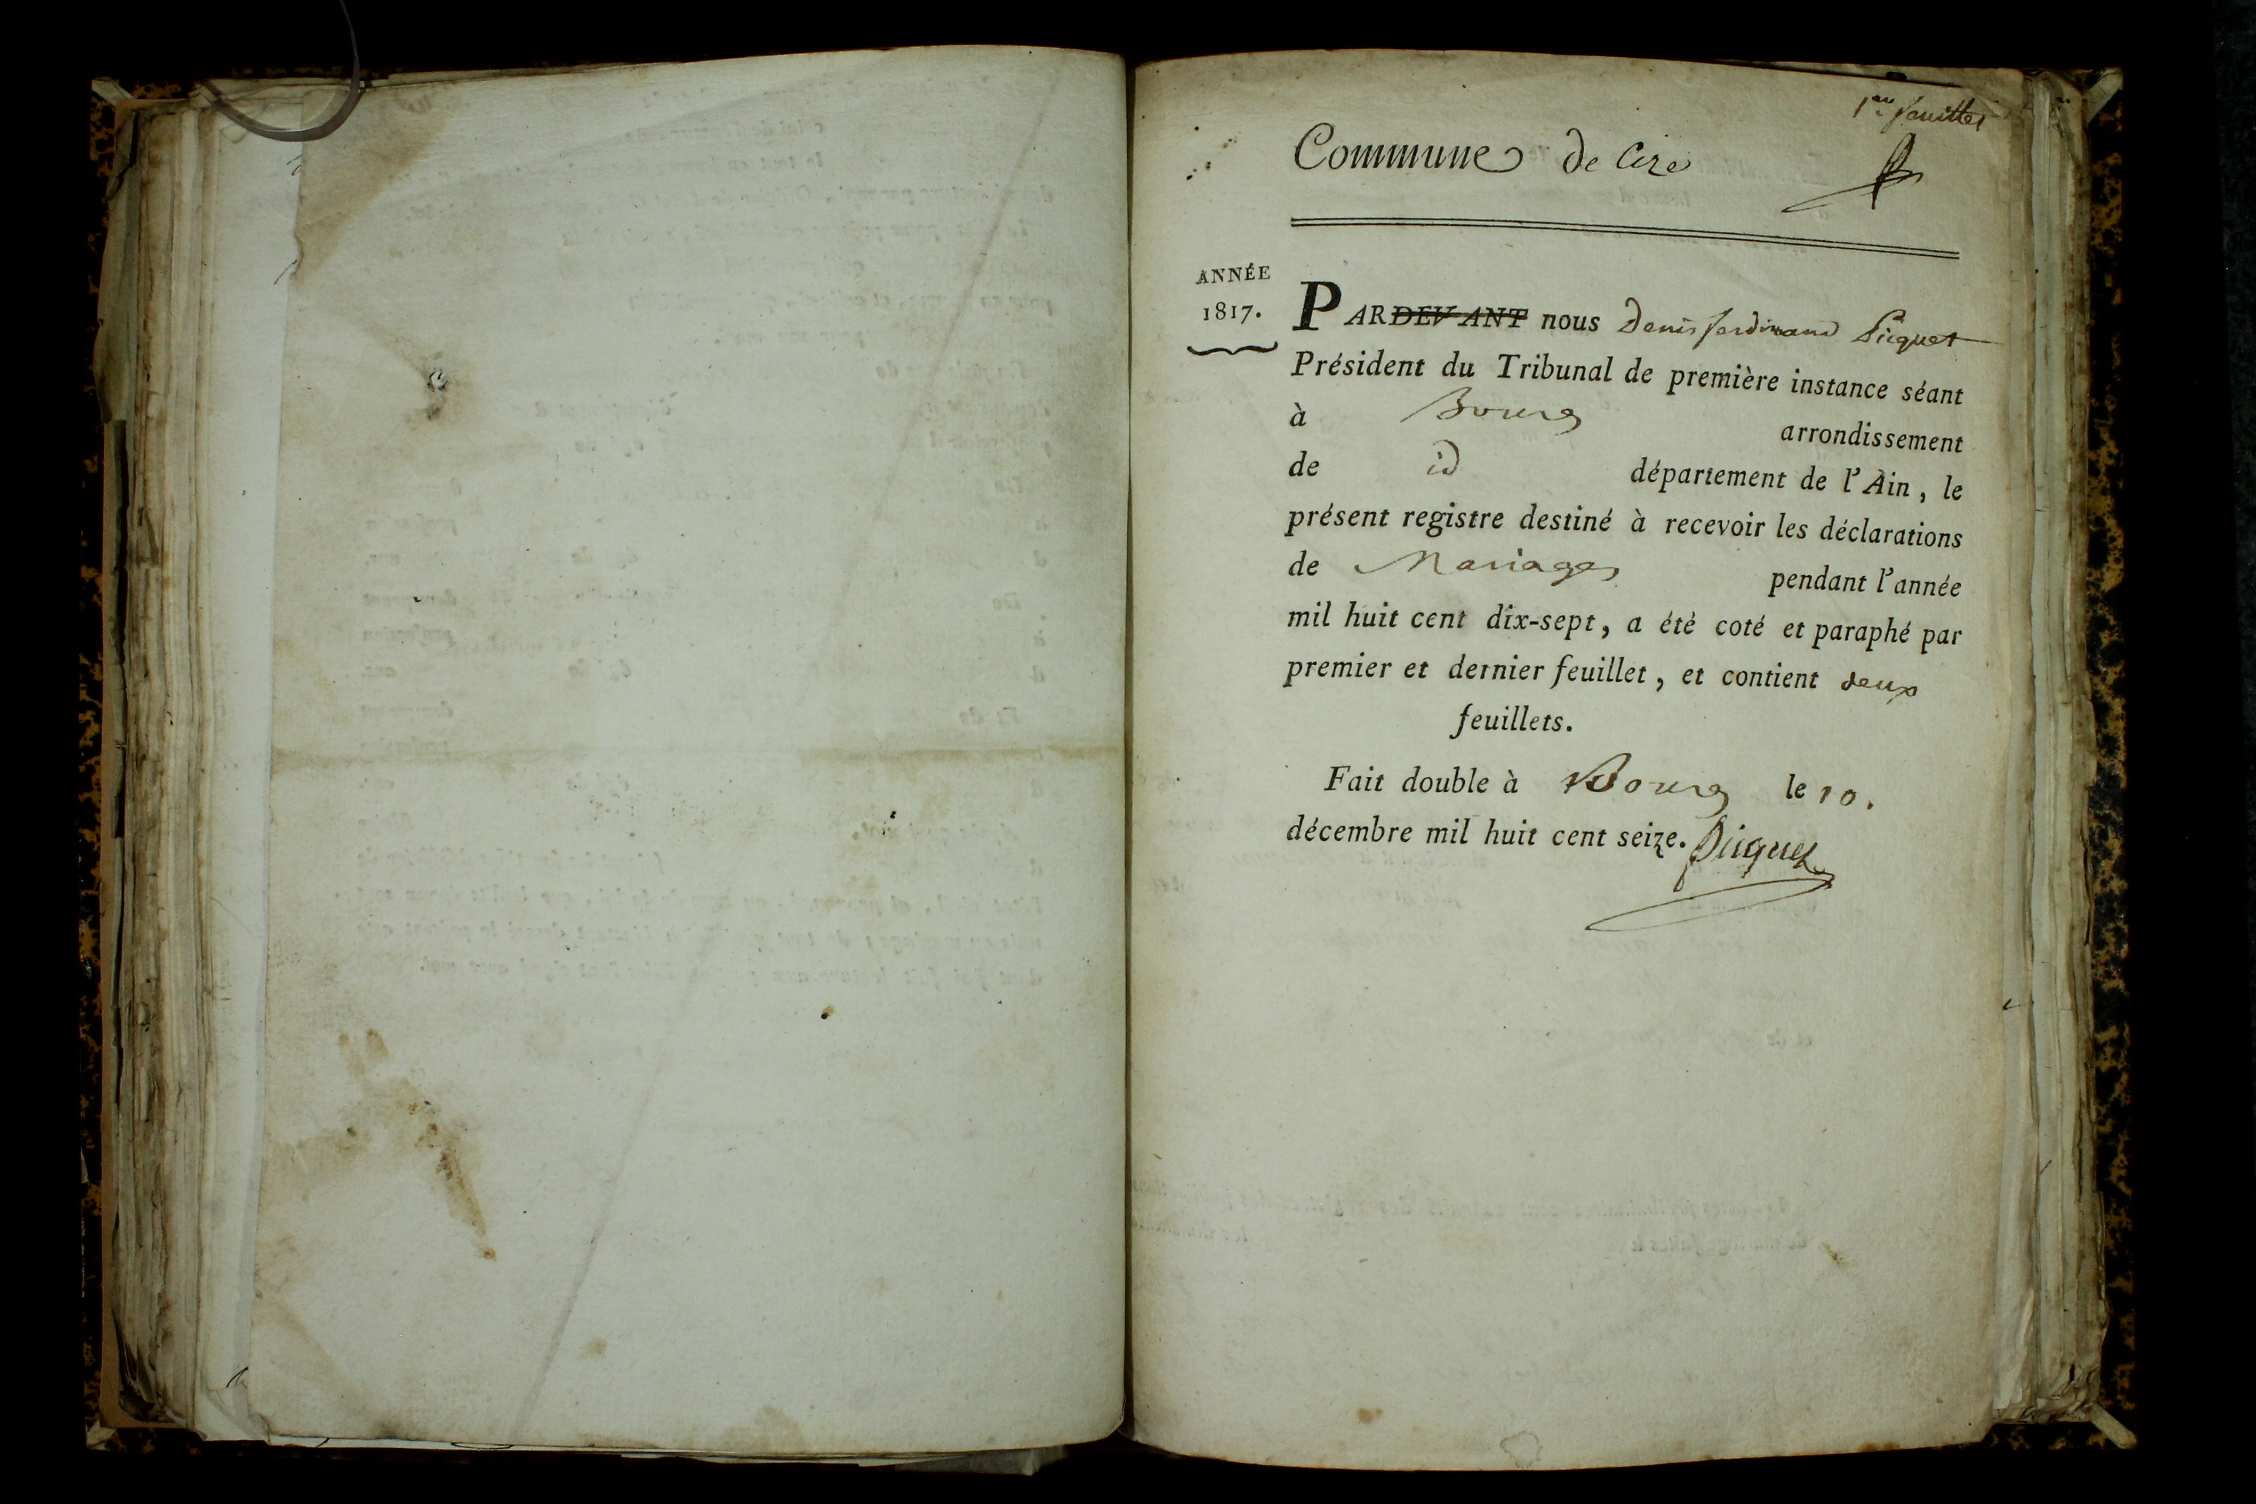 1er feuillet
Commune de Cize
ANNÉE
1817.
PARDEVANT nous Denis ferdinand Picquet
Président du Tribunal de première instance séant
à Bourg arrondissement
de id département de l'Ain, le
présent registre destiné à recevoir les déclarations
de Mariages pendant l'année
mil huit cent dix-sept, a été coté et paraphé par
premier et dernier feuillet, et contient deux
feuillets.
Fait double à Bourg le 10.
décembre mil huit cent seize. Picquet